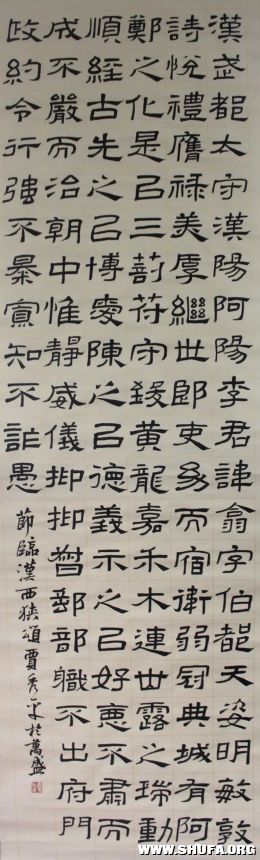 漢武都太守漢陽阿陽李君諱翕字伯都天姿明敏敦
詩悅禮膺祿美厚繼世郎吏幼而宿衛弱冠典城有阿
鄭之化是㠯三剖苻守致黃龍嘉禾木連甘露之瑞動
順經古先之㠯博愛陳之㠯德義示之㠯好惡不肅而
成不嚴而治朝中惟靜威儀抑抑督郵部職不出府門
政約令行強不暴寡知不詐愚
節臨漢西狹頌賈秀平於萬盛
WWW.SHUFA.ORG